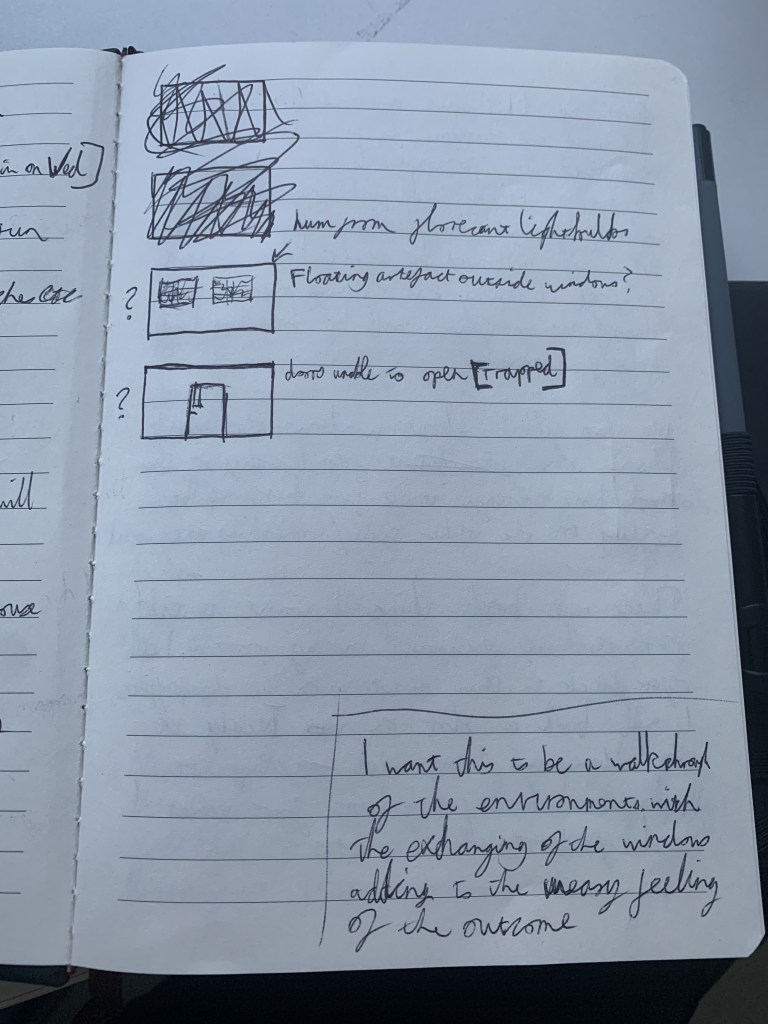 in on Wed]
hum from florecant lightbulbs
? Floating artefact outside windows?
? doors unable to open [Trapped]
will
I want this to be a walkthrough
of the environments, with
the exchanging of the windows
adding to the uneasy feeling
of the outcome